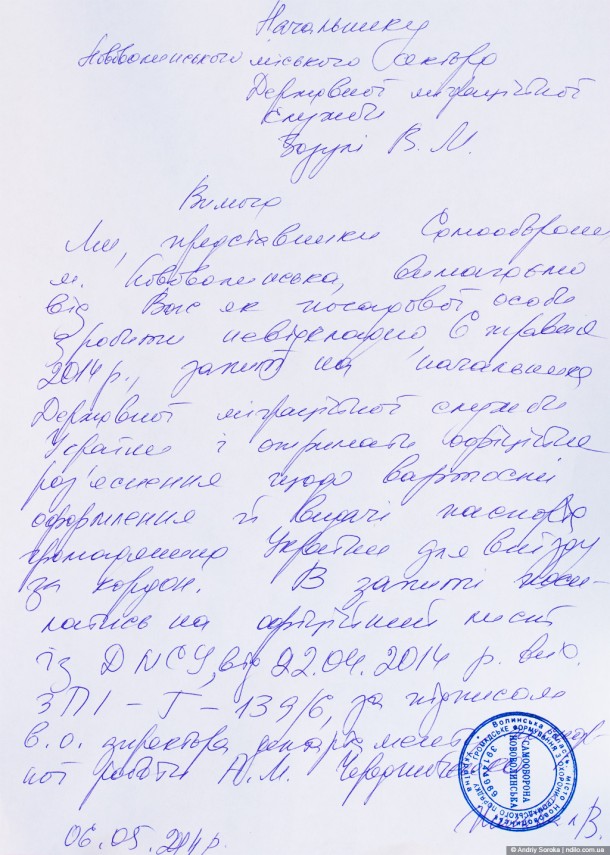 Начальнику
Нововолинського міського сектора
Державної міграційної
служби
Зозулі В. М.
Вимога
Ми, представники Самооборони
м. Нововолинська, вимагаємо
від Вас як посадової особи
зробити невідкладно, 6 травня
2014 р., запит на начальника
Державної міграційної служби
України і отримати офіційне
роз'яснення щодо вартості
оформлення й видачі паспорта
громадянина України для виїзду
за кордон. В запиті поси-
латись на офіційний лист
із ДМСУ, від 22.04.2014 р. вих.
ЗПІ – Т – 139/6, за підписом
в.о. директора департаменту
ної роботи А.М.
САМООБОРОНА
НОВОВОЛИНСЬКА
Волинська область, місто Нововолинськ
Україна
06.05.2014р.
© Andriy Soroka | ndilo.com.ua